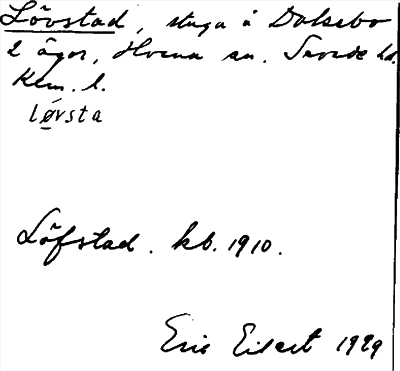 Lövstad, stuga å Dalsebo
2 ägor, Hvena sn. Sevede hd.
Klm. l.
løvsta
Löfstad. kb. 1910.
Eric Eilert 1929